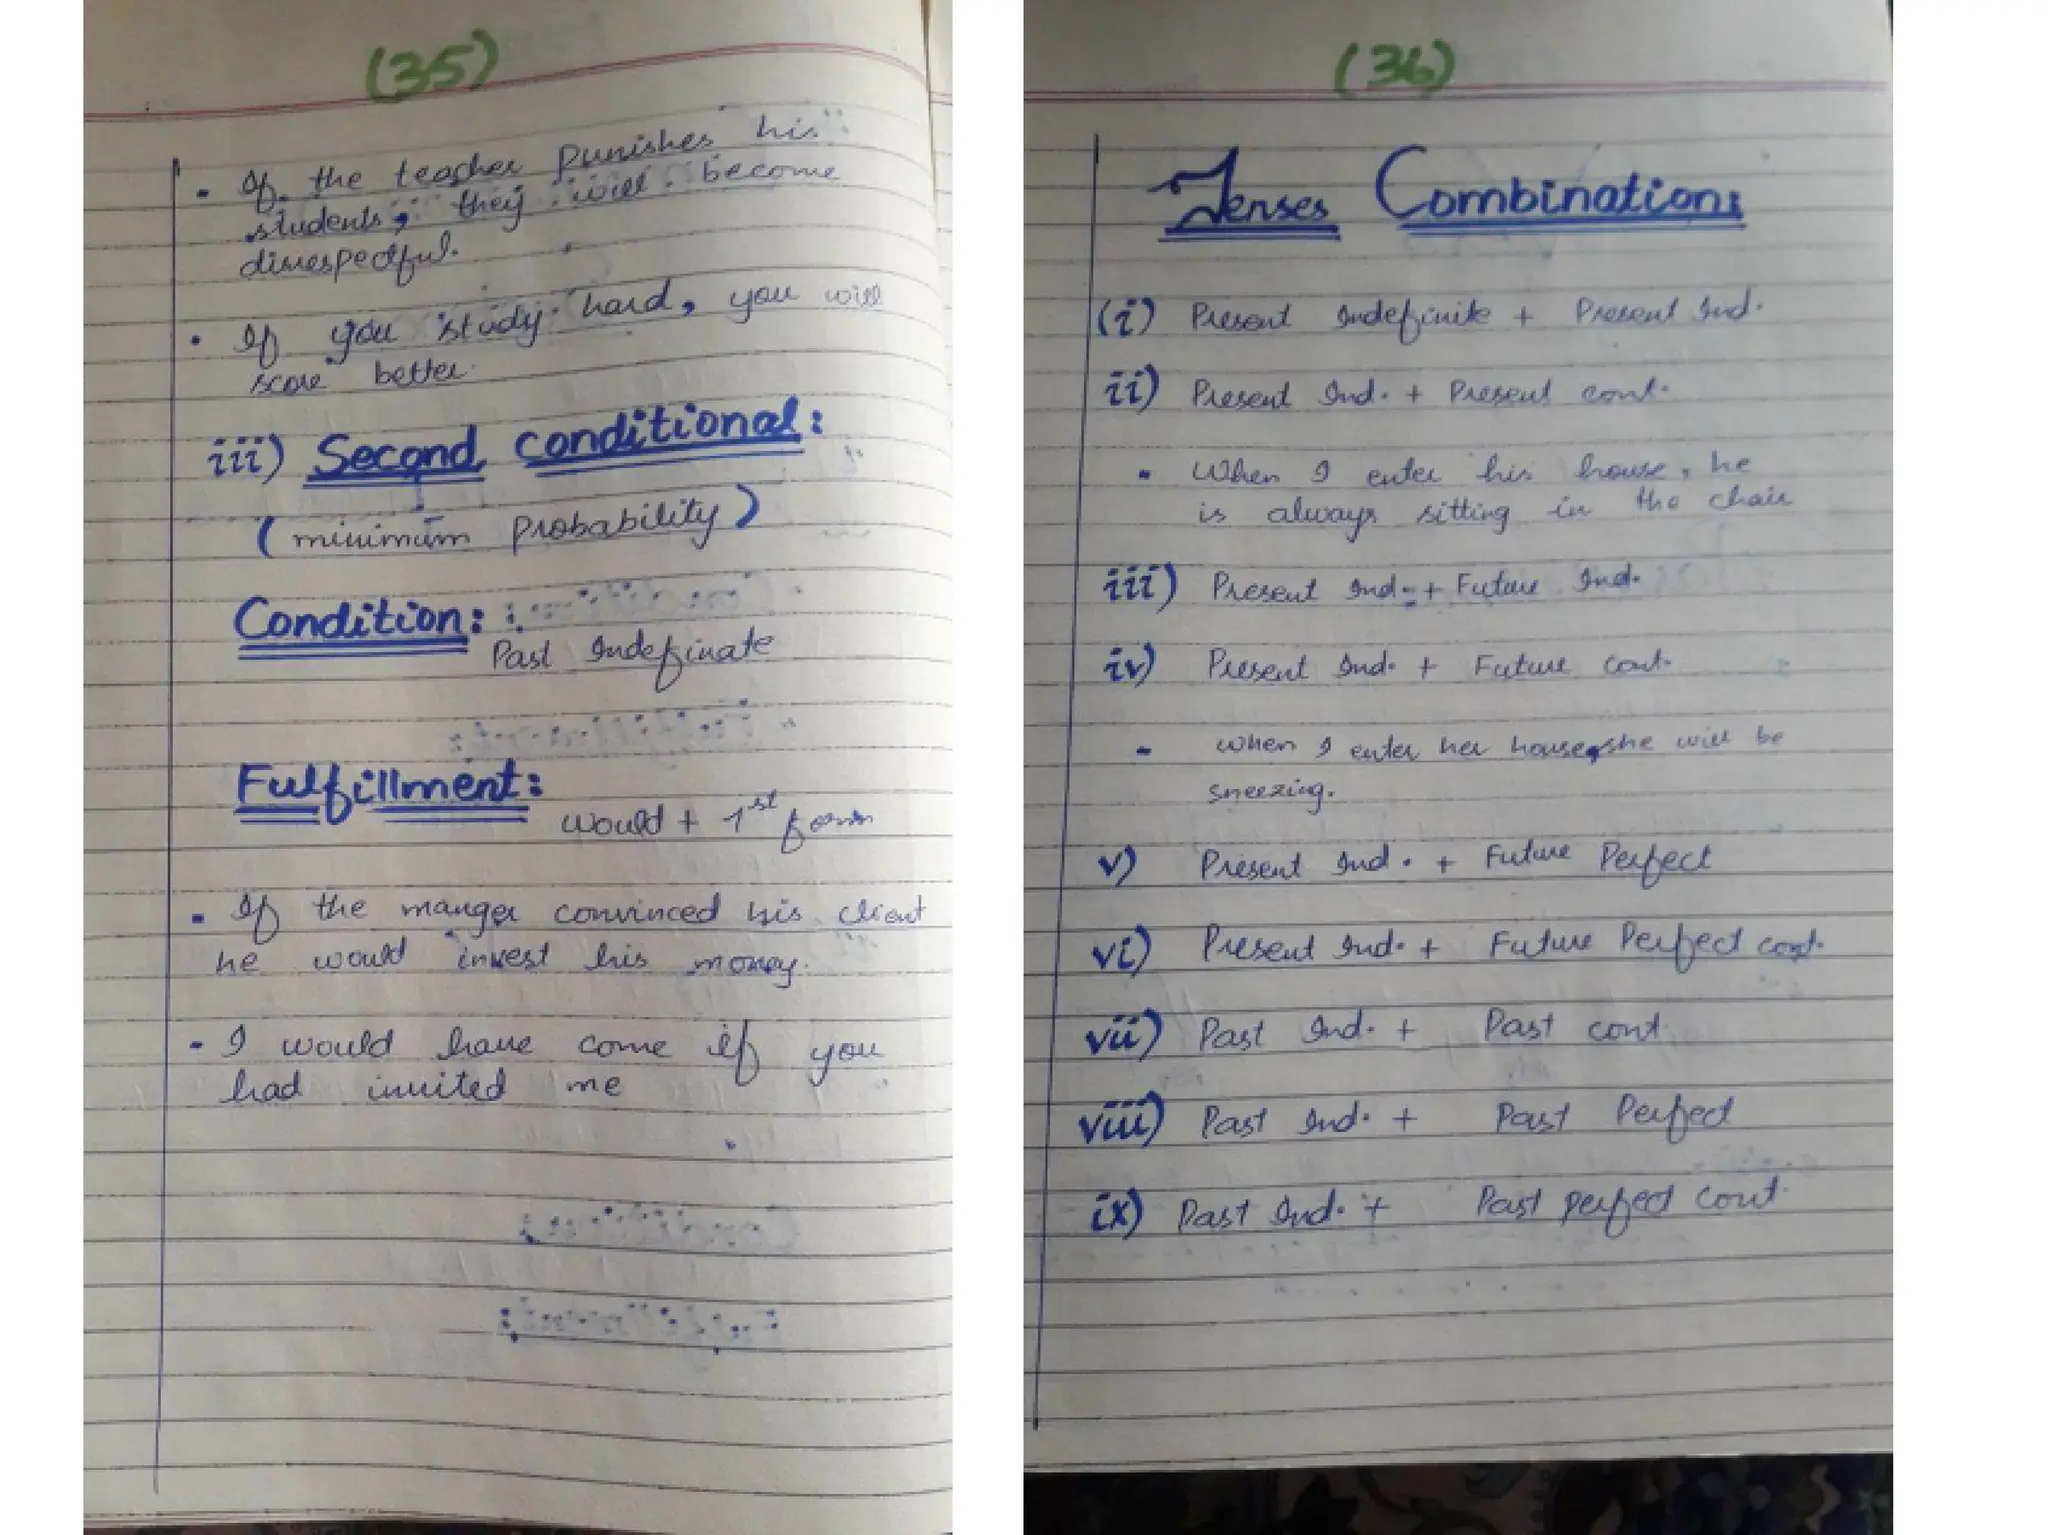 (35)
• If the teacher punishes his
students, they will become
disrespectful.
• If you study hard, you will
score better.
iii) Second conditional:
(minimum probability)
Condition:
Past Indefinate
Fulfillment:
would + 1st form
- If the manger convinced his client
he would invest his money.
- I would have come if you
had invited me
(36)
Tenses Combinations
(i) Present Indefinite + Present Ind.
ii) Present Ind. + Present cont.
- When I enter his house, he
is always sitting in the chair
iii) Present Ind. + Future Ind.
iv) Present Ind. + Future cont.
- when I enter her house, she will be
sneezing.
v) Present Ind. + Future Perfect
vi) Present Ind. + Future Perfect cont.
vii) Past Ind. + Past cont.
viii) Past Ind. + Past Perfect
ix) Past Ind. + Past perfect Cont.